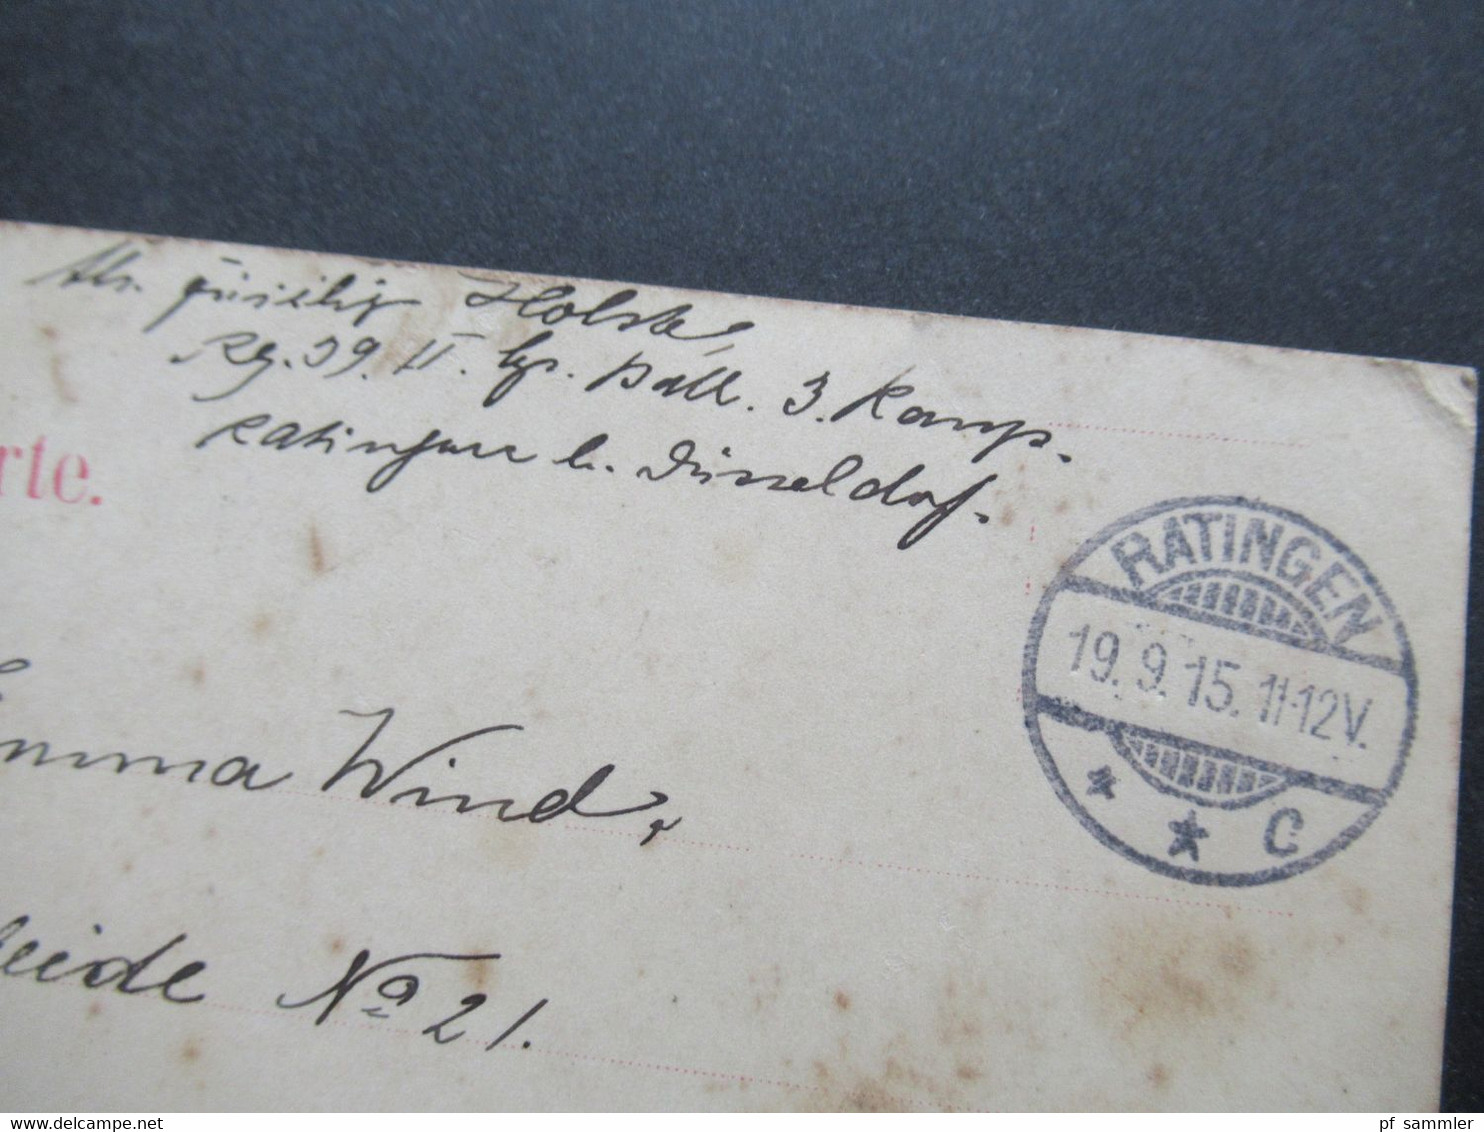 Abs. Holste,
Rg. 39. II. Batl. 3. Komp.
Ratingen b. Düsseldorf.
rte.
RATINGEN
19. 9. 15. 11-12V.
* * C
Emma Wind,
eide No 21.
pf_sammler